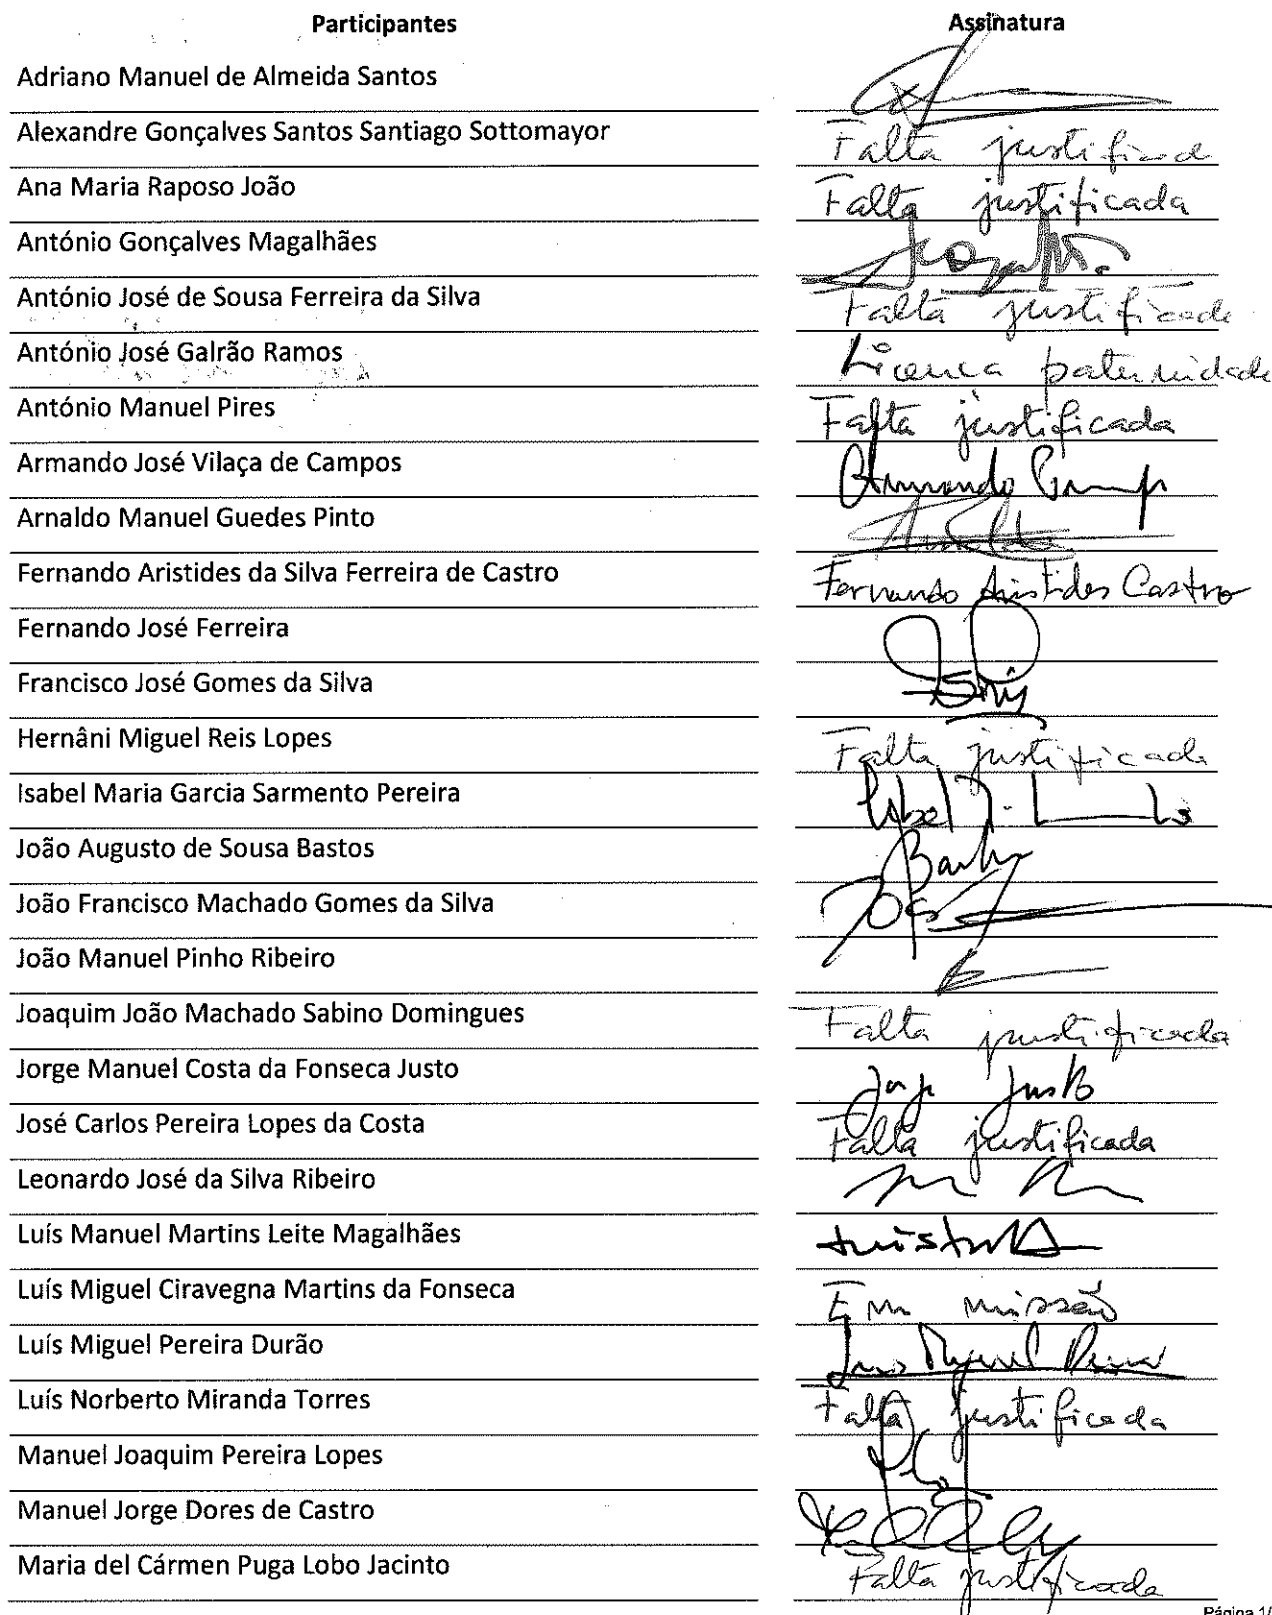 Participantes Assinatura
Adriano Manuel de Almeida Santos
Alexandre Gonçalves Santos Santiago Sottomayor Falta justificada
Ana Maria Raposo João Falta justificada
António Gonçalves Magalhães
António José de Sousa Ferreira da Silva Falta justificada
António José Galrão Ramos Licença paternidade
António Manuel Pires Falta justificada
Armando José Vilaça de Campos Armando
Arnaldo Manuel Guedes Pinto Arnaldo
Fernando Aristides da Silva Ferreira de Castro Fernando Aristides Castro
Fernando José Ferreira
Francisco José Gomes da Silva
Hernâni Miguel Reis Lopes Falta justificada
Isabel Maria Garcia Sarmento Pereira Isabel
João Augusto de Sousa Bastos
João Francisco Machado Gomes da Silva
João Manuel Pinho Ribeiro
Joaquim João Machado Sabino Domingues Falta justificada
Jorge Manuel Costa da Fonseca Justo Jorge Justo
José Carlos Pereira Lopes da Costa Falta justificada
Leonardo José da Silva Ribeiro
Luís Manuel Martins Leite Magalhães
Luís Miguel Ciravegna Martins da Fonseca Em missão
Luís Miguel Pereira Durão Luís Miguel
Luís Norberto Miranda Torres Falta justificada
Manuel Joaquim Pereira Lopes
Manuel Jorge Dores de Castro
Maria del Cármen Puga Lobo Jacinto Falta justificada
Página 1/